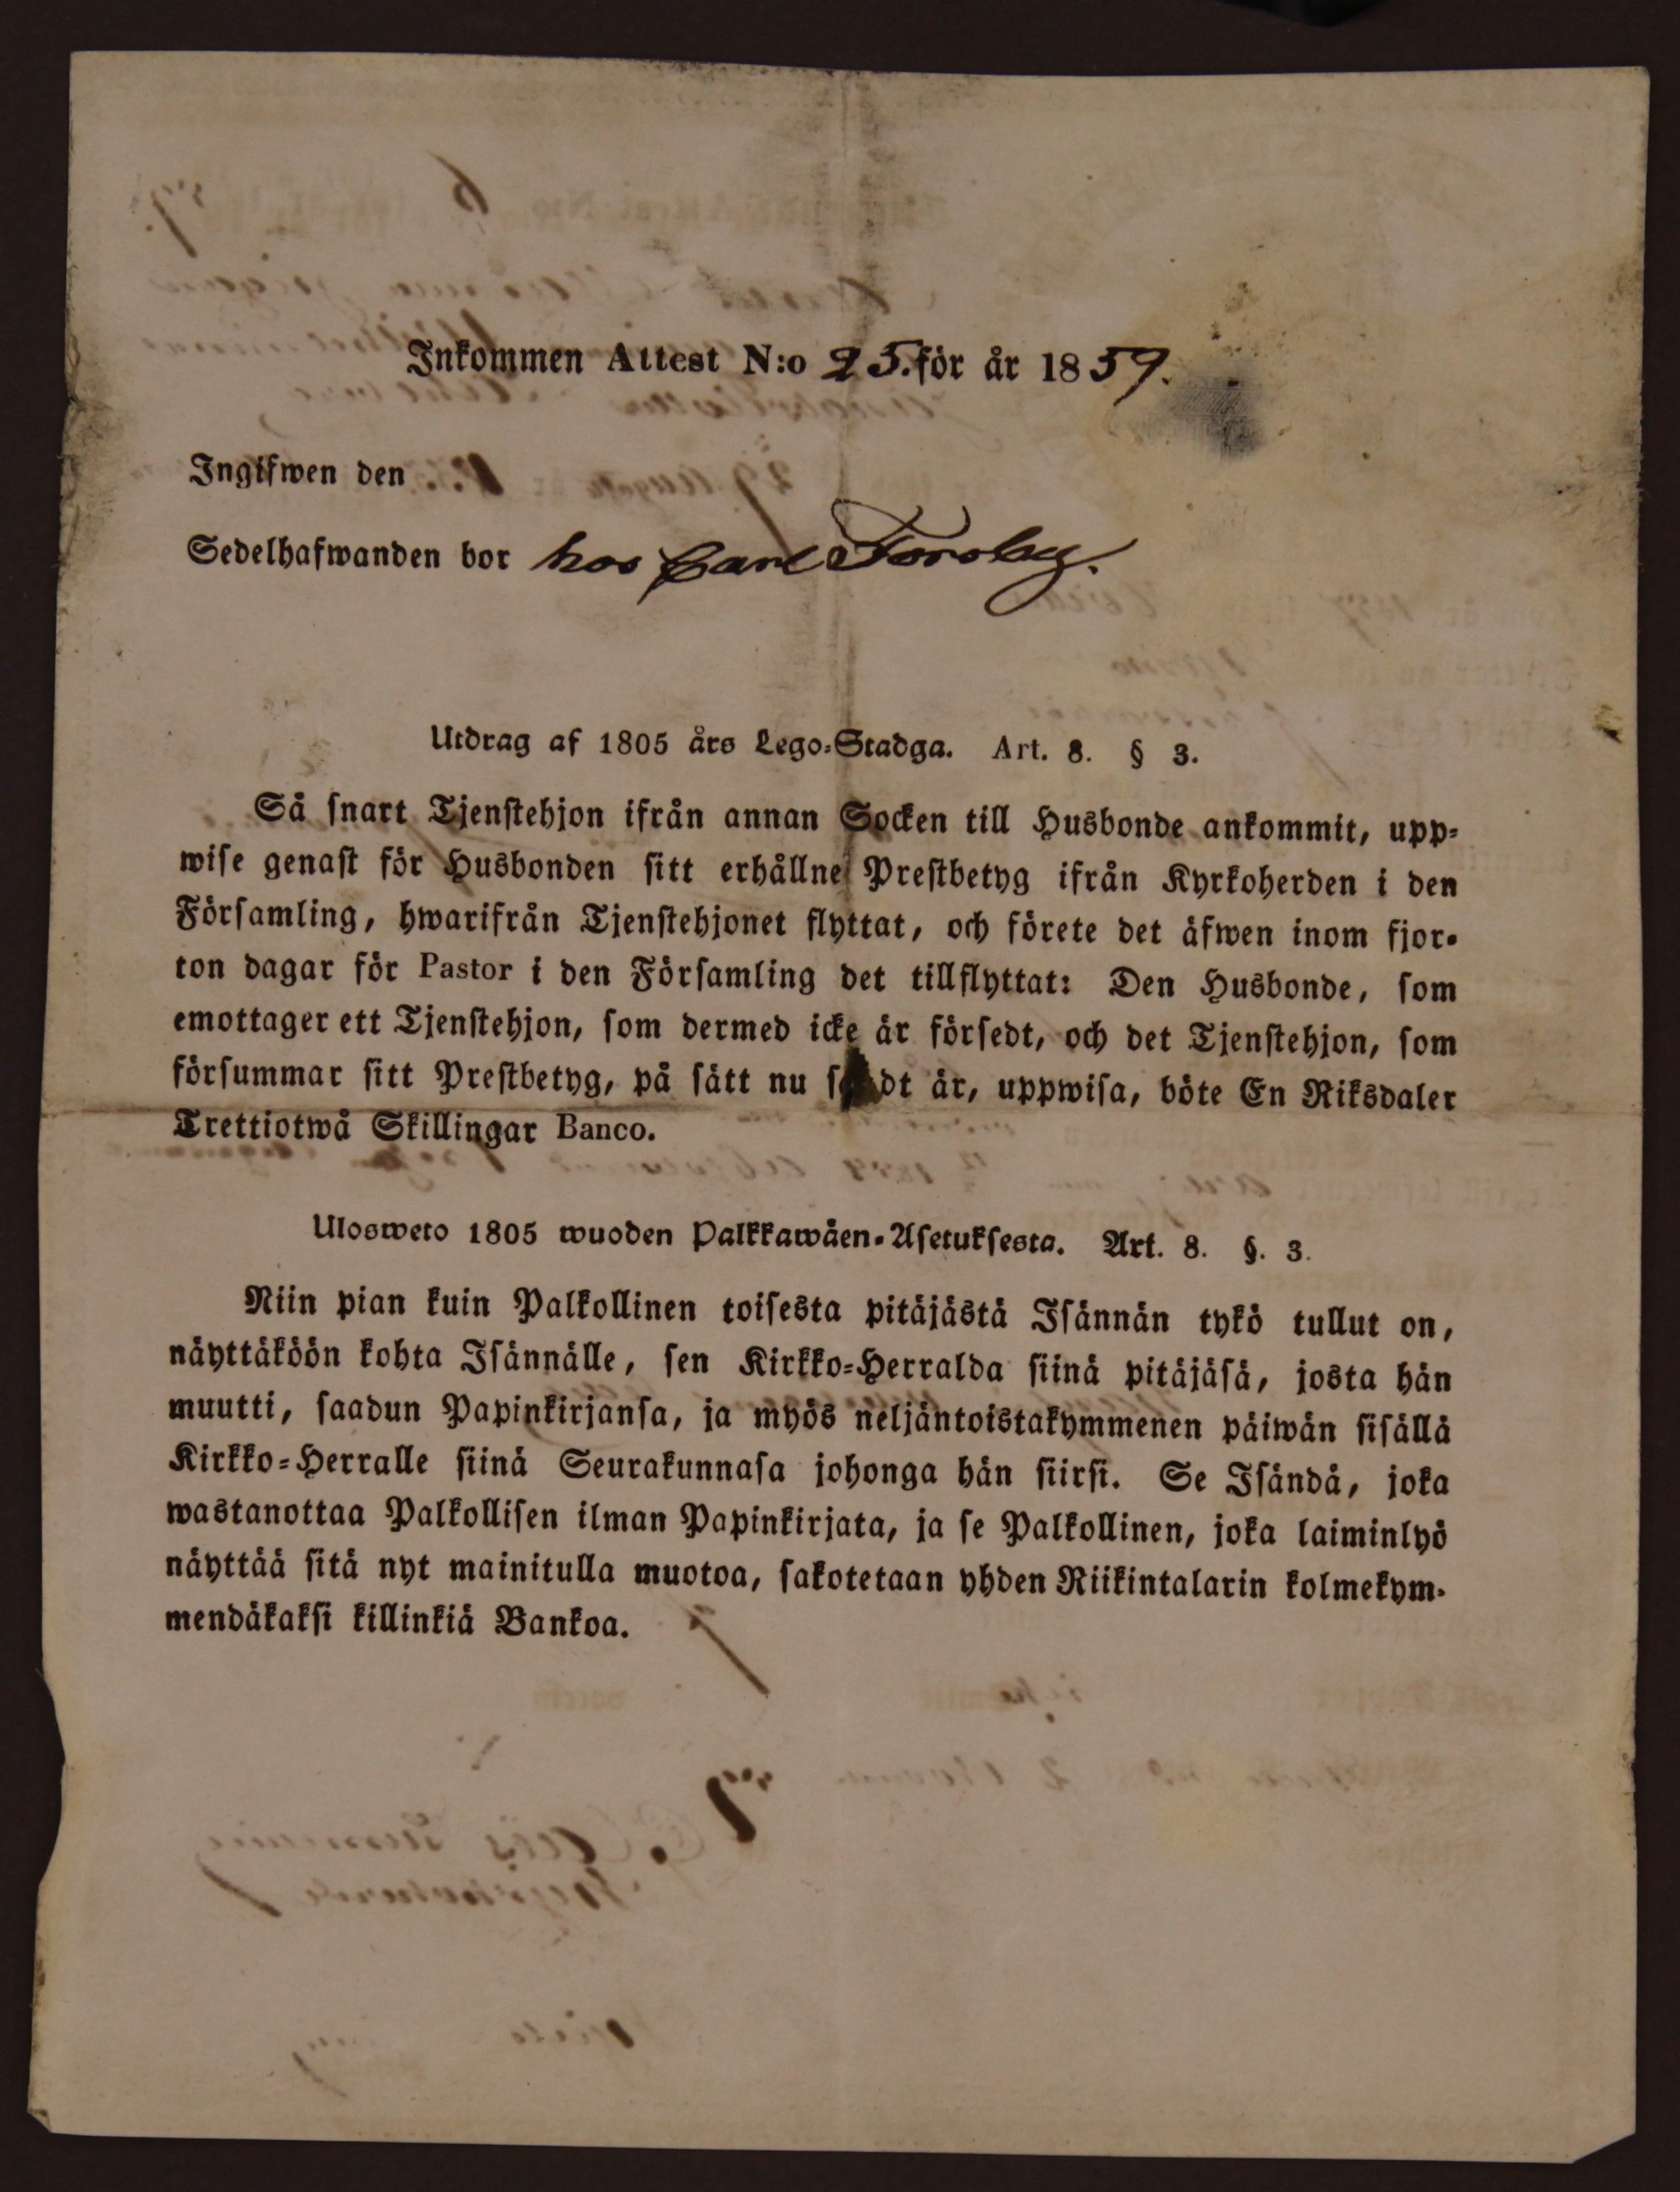 Inkommen Attest N:o 25. för år 1859.
Ingifwen den
Sedelhafwanden bor hos Carl Forsby.
Utdrag af 1805 års Lego-Stadga. Art. 8. § 3.
Så snart Tjenstehjon ifrån annan Socken till Husbonde ankommit, upp-
wise genast för Husbonden sitt erhållne Prestbetyg ifrån Kyrkoherden i den
Församling, hwarifrån Tjenstehjonet flyttat, och förete det äfwen inom fjor-
ton dagar för Pastor i den Församling det tillflyttat: Den Husbonde, som
emottager ett Tjenstehjon, som dermed icke är försedt, och det Tjenstehjon, som
försummar sitt Prestbetyg, på sätt nu sagdt är, uppwisa, böte En Riksdaler
Trettiotwå Skillingar Banco.
Ulosweto 1805 wuoden Palkkawäen-Asetuksesta. Art. 8. §. 3.
Niin pian kuin Palkollinen toisesta pitäjästä Isännän tykö tullut on,
näyttäköön kohta Isännälle, sen Kirkko-Herralda siinä pitäjäsä, josta hän
muutti, saadun Papinkirjansa, ja myös neljäntoistakymmenen päiwän sisällä
Kirkko-Herralle siinä Seurakunnasa johonga hän siirsi. Se Isändä, joka
wastanottaa Palkollisen ilman Papinkirjata, ja se Palkollinen, joka laiminlyö
näyttää sitä nyt mainitulla muotoa, sakotetaan yhden Riikintalarin kolmekym-
mendäkaksi killinkiä Bankoa.